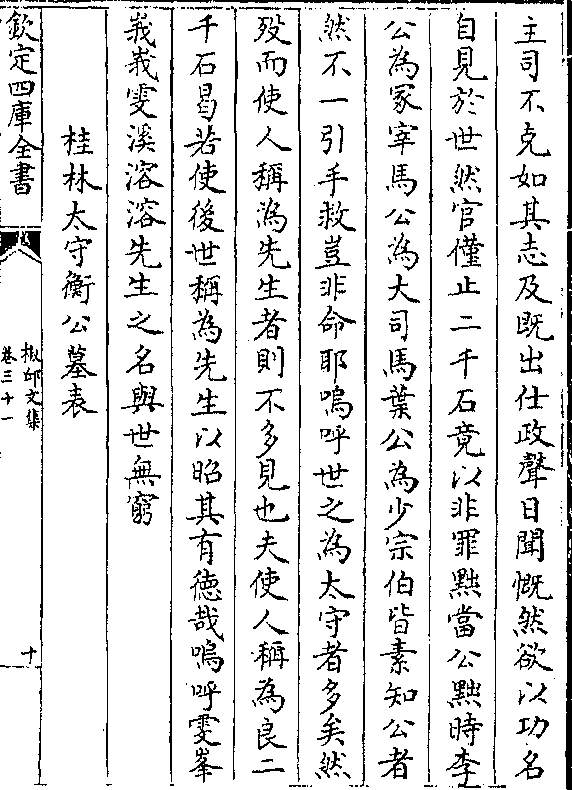 主司不克如其志及既出仕政聲日聞慨然欲以功名
自見於世然官僅止二千石竟以非罪黜當公黜時李
公為冢宰馬公為大司馬葉公為少宗伯皆素知公者
然不一引手救豈非命耶嗚呼世之為太守者多矣然
歿而使人稱為先生者則不多見也夫使人稱為良二
千石曷若使後世稱為先生以昭其有德哉嗚呼雯峯
峩峩雯溪溶溶先生之名與世無窮
桂林太守衡公墓表
欽定四庫全書
椒邱文集
卷三十一
十